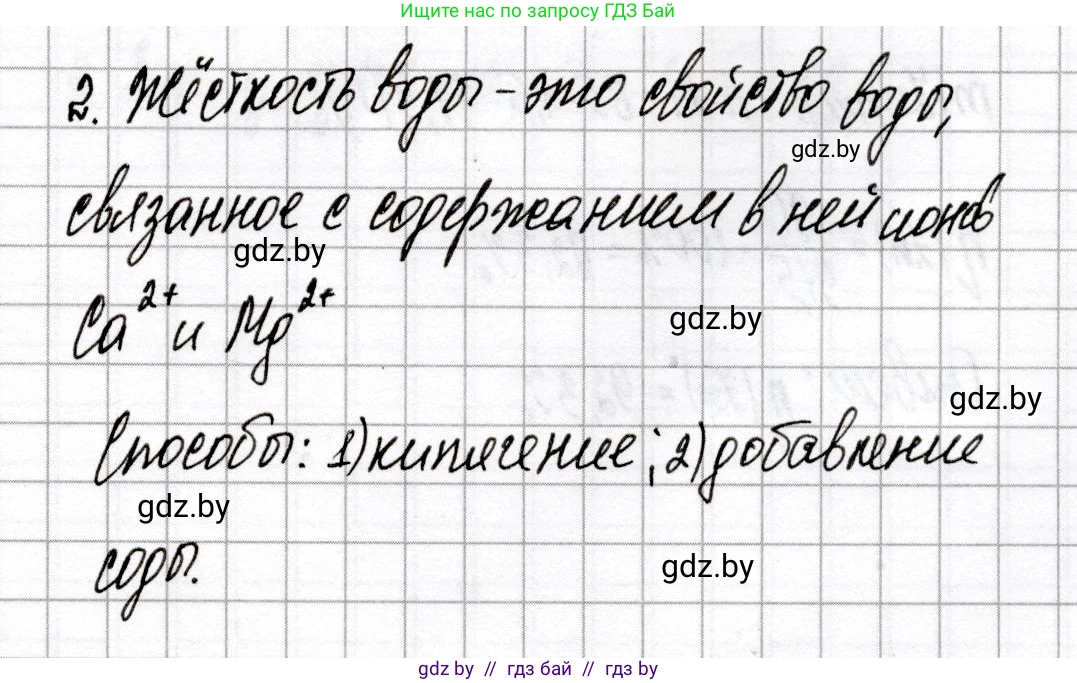 Ищите нас по запросу ГДЗ Бай
2. Жёсткость воды - это свойство воды,
gdz.by
связанное с содержанием в ней ионов
gdz.by
Ca²⁺ и Mg²⁺
gdz.by
gdz.by
Способы: 1) кипячение; 2) добавление
gdz.by
соды.
gdz.by
gdz.by // гдз бай // гдз by